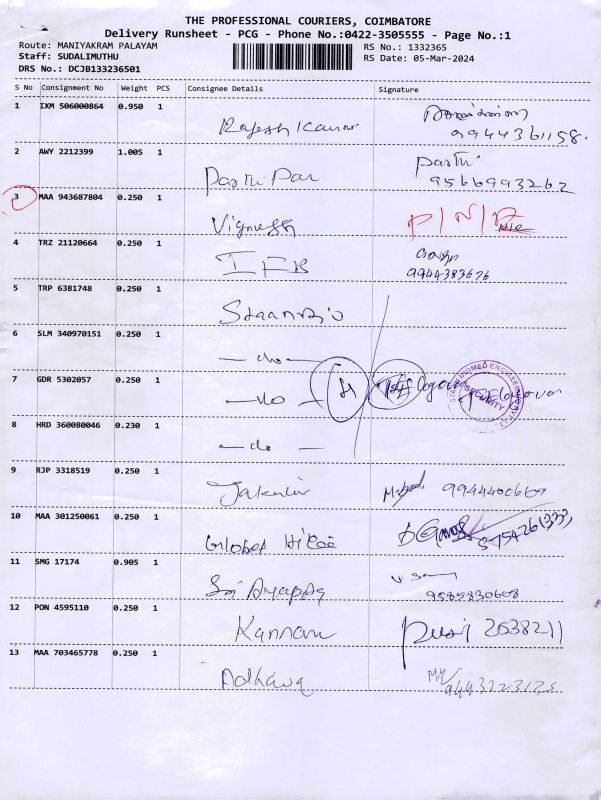 THE PROFESSIONAL COURIERS, COIMBATORE
Delivery Runsheet - PCG - Phone No.:0422-3505555 - Page No.:1
Route: MANIYAKRAM PALAYAM RS No.: 1332365
Staff: SUDALIMUTHU RS Date: 05-Mar-2024
DRS No.: DCJB133236501
S No Consignment No Weight PCS Consignee Details Signature
1 IXM 506000864 0.950 1
Rajesh Kumar 9944361158.
2 AWY 2212399 1.005 1 Parthi
Parthi Pan 9566993262
3 MAA 943687804 0.250 1 P/N/R
Vignesh
4 TRZ 21120664 0.250 1
IFB 9944383676
5 TRP 6381748 0.250 1
6 SLM 340970151 0.250 1
-do-
7 GDR 5302057 0.250 1
-do-
SECURITY
8 HRD 360080046 0.230 1
-do-
9 RJP 3318519 0.250 1
10 MAA 301250061 0.250 1
Global
11 SMG 17174 0.905 1
Sri Ayappa 9585830608
12 PON 4595110 0.250 1
Kannan 2638211
13 MAA 703465778 0.250 1